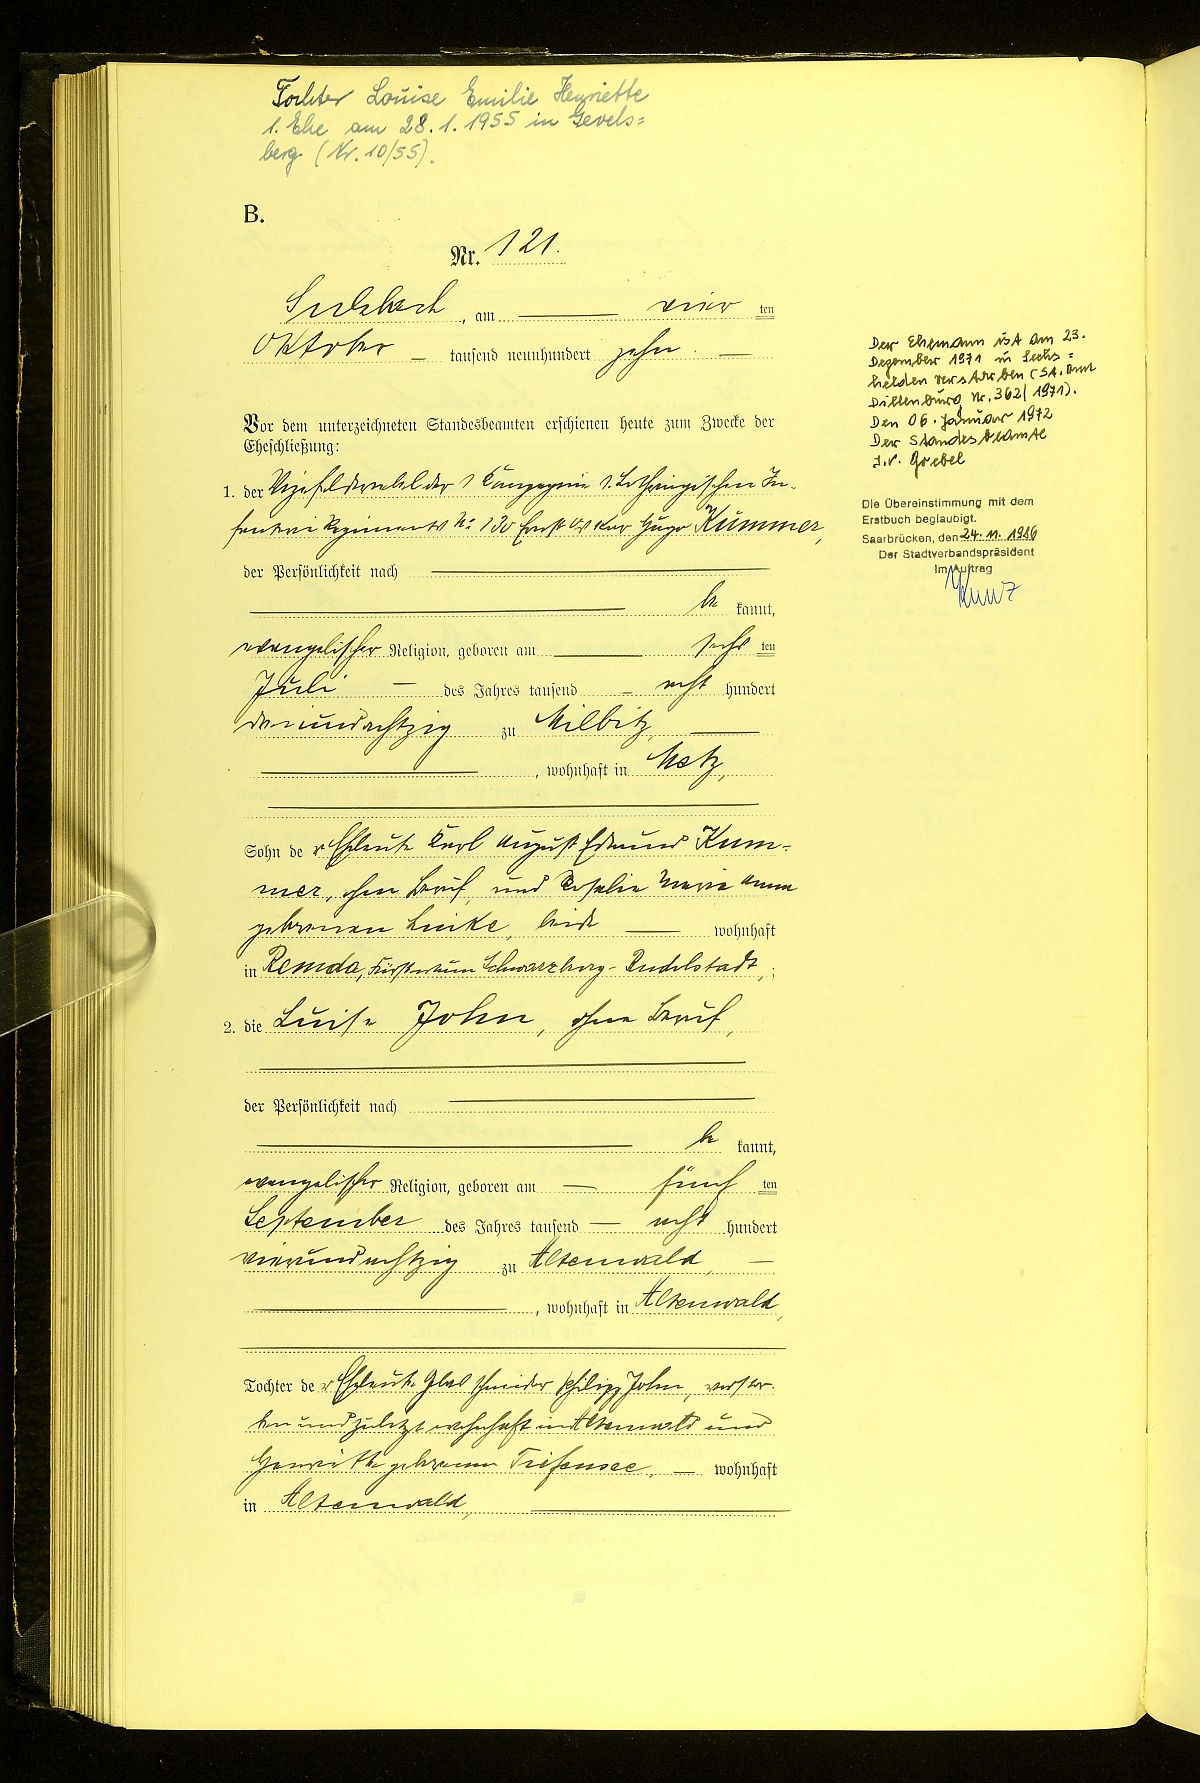 Tochter Louise Emilie Henriette
1. Ehe am 28. 1. 1955 in Gevels=
berg (Nr. 10/55).
B.
Nr. 121.
Sulzbach, am vier ten
Oktober — tausend neunhundert zehn. —
Vor dem unterzeichneten Standesbeamten erschienen heute zum Zwecke der
Eheschließung:
1. der Vizefeldwebel der 1 Compagnie 1. Lothringischen In-
fanterie Regiments No 130 Ernst Oskar Hugo Kümmer,
der Persönlichkeit nach
be kannt,
evangelischer Religion, geboren am sechs ten
Juli — des Jahres tausend — acht hundert
dreiundachtzig zu Milbitz,
, wohnhaft in Metz,
Sohn de r Eheleute Karl August Edmund Küm-
mer, ohne Beruf, und Rosalie Marie Anna
geborenen Linke, beide — wohnhaft
in Remda, Fürstentum Schwarzburg-Rudolstadt,;
2. die Luise John, ohne Beruf,
der Persönlichkeit nach
be kannt,
evangelischer Religion, geboren am — fünf ten
September des Jahres tausend — acht hundert
vierundachtzig zu Altenwald, —
, wohnhaft in Altenwald,
Tochter de r Eheleute Glasschneider Philipp John, verstor-
ben und zuletzt wohnhaft in Altenwald und
Henriette geborenen Tiefensee, — wohnhaft
in Altenwald,
Der Ehemann ist am 23.
Dezember 1971 in Sechs=
helden verstorben (St. Amt
Dillenburg Nr. 362/1971).
Den 06. Januar 1972
Der Standesbeamte
I.V. Goebel
Die Übereinstimmung mit dem
Erstbuch beglaubigt.
Saarbrücken, den 24. 11. 1986
Der Stadtverbandspräsident
Im Auftrag
Kunz